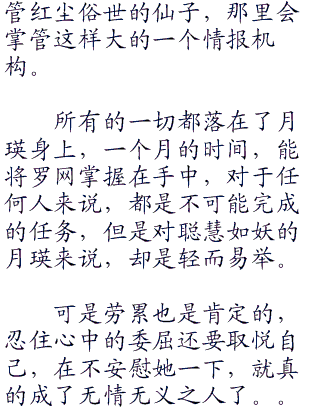 管红尘俗世的仙子，那里会
掌管这样大的一个情报机
构。
所有的一切都落在了月
瑛身上，一个月的时间，能
将罗网掌握在手中，对于任
何人来说，都是不可能完成
的任务，但是对聪慧如妖的
月瑛来说，却是轻而易举。
可是劳累也是肯定的，
忍住心中的委屈还要取悦自
己，在不安慰她一下，就真
的成了无情无义之人了。。